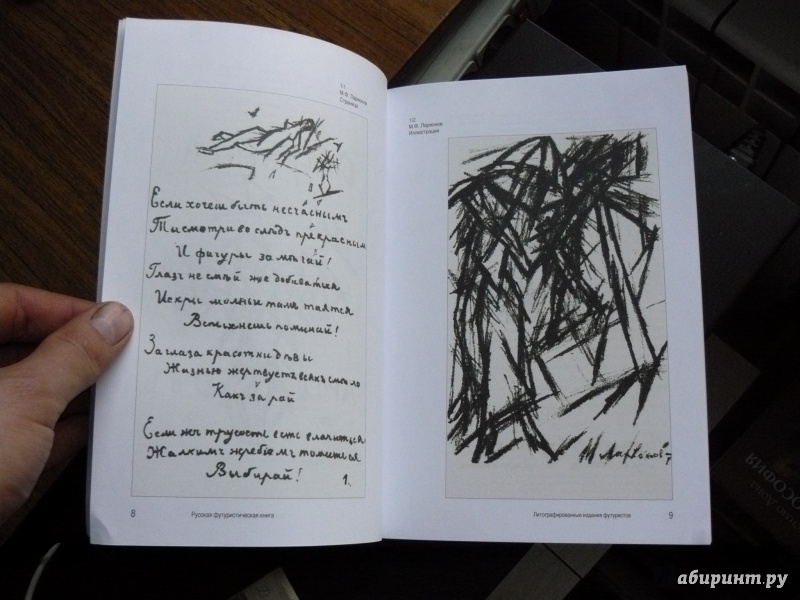 11
М.Ф. Ларионов
Страница
1
8
Если хочеш быть несчаснымъ
Ти смотри во слѣдъ прекрасным
И фигуры замѣчай!
Глазъ не смѣй же добиватца
Искры молньи тамъ таятся
Вспыхнешь поминай!
За глаза красотки дѣвы
Жизнью жертвуетъ всякъ смѣло
Какъ за рай
Если жъ трусость есть
Жалкимъ жребіемъ томиться
Выбирай!
1.
8
Русская футуристическая книга
12
М.Ф. Ларионов
Иллюстрация
М Ларионовъ
Литографированные издания футуристов
9
СОФИЯ
абиринт.ру